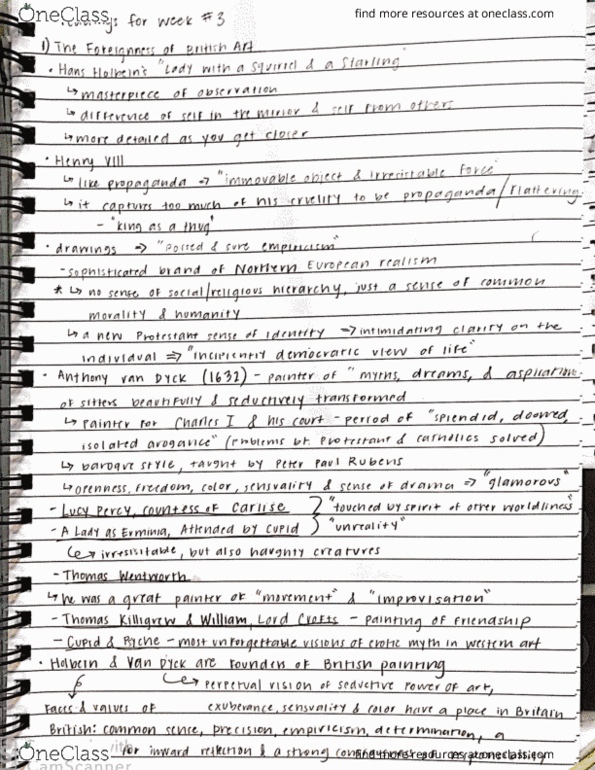 OneClass
find more resources at oneclass.com
for week #3
1) The Foreignness of British Art
• Hans Holbein's "Lady with a Squirrel & a Starling"
↳ masterpiece of observation
↳ difference of self in the mirror & self from others
↳ more detailed as you get closer
• Henry VIII
↳ like propaganda → "immovable object & irresistable force"
↳ it captures too much of his cruelity to be propaganda/flattering
- "king as a thug"
• drawings ⇒ "poised & sure empiricism"
- sophisticated brand of Northern European realism
* ↳ no sense of social/religious hierarchy, just a sense of common
morality & humanity
↳ a new Protestant sense of identity ⇒ intimidating clarity on the
individual ⇒ "incipiently democratic view of life"
• Anthony van Dyck (1632) - painter of "myths, dreams, & aspiration
of sitters beautifully & seductively transformed
↳ painter for Charles I & his court - period of "splendid, doomed,
isolated arogance" (problems bt. Protestant & catholics solved)
↳ baroque style, taught by Peter Paul Rubens
↳ openness, freedom, color, sensuality & sense of drama ⇒ "glamorous"
- Lucy Percy, countess of Carlise } "touched by spirit of other worldliness"
- A Lady as Erminia, Attended by Cupid } "unreality"
↳ irresisitable, but also haughty creatures
- Thomas Wentworth
↳ he was a great painter of "movement" & "improvisation"
- Thomas Killigrew & William, Lord Crofts - painting of friendship
- Cupid & Pyche - most unforgettable visions of erotic myth in western art
• Holbein & Van Dyck are founders of British painting
↳ perpetual vision of seductive power of art,
faces & values of exuberance, sensuality & color have a place in Britain
British: common sense, precision, empiricism, determination, a
for inward reflection & a strong
OneClass
find more resources at oneclass.com
CamScanner